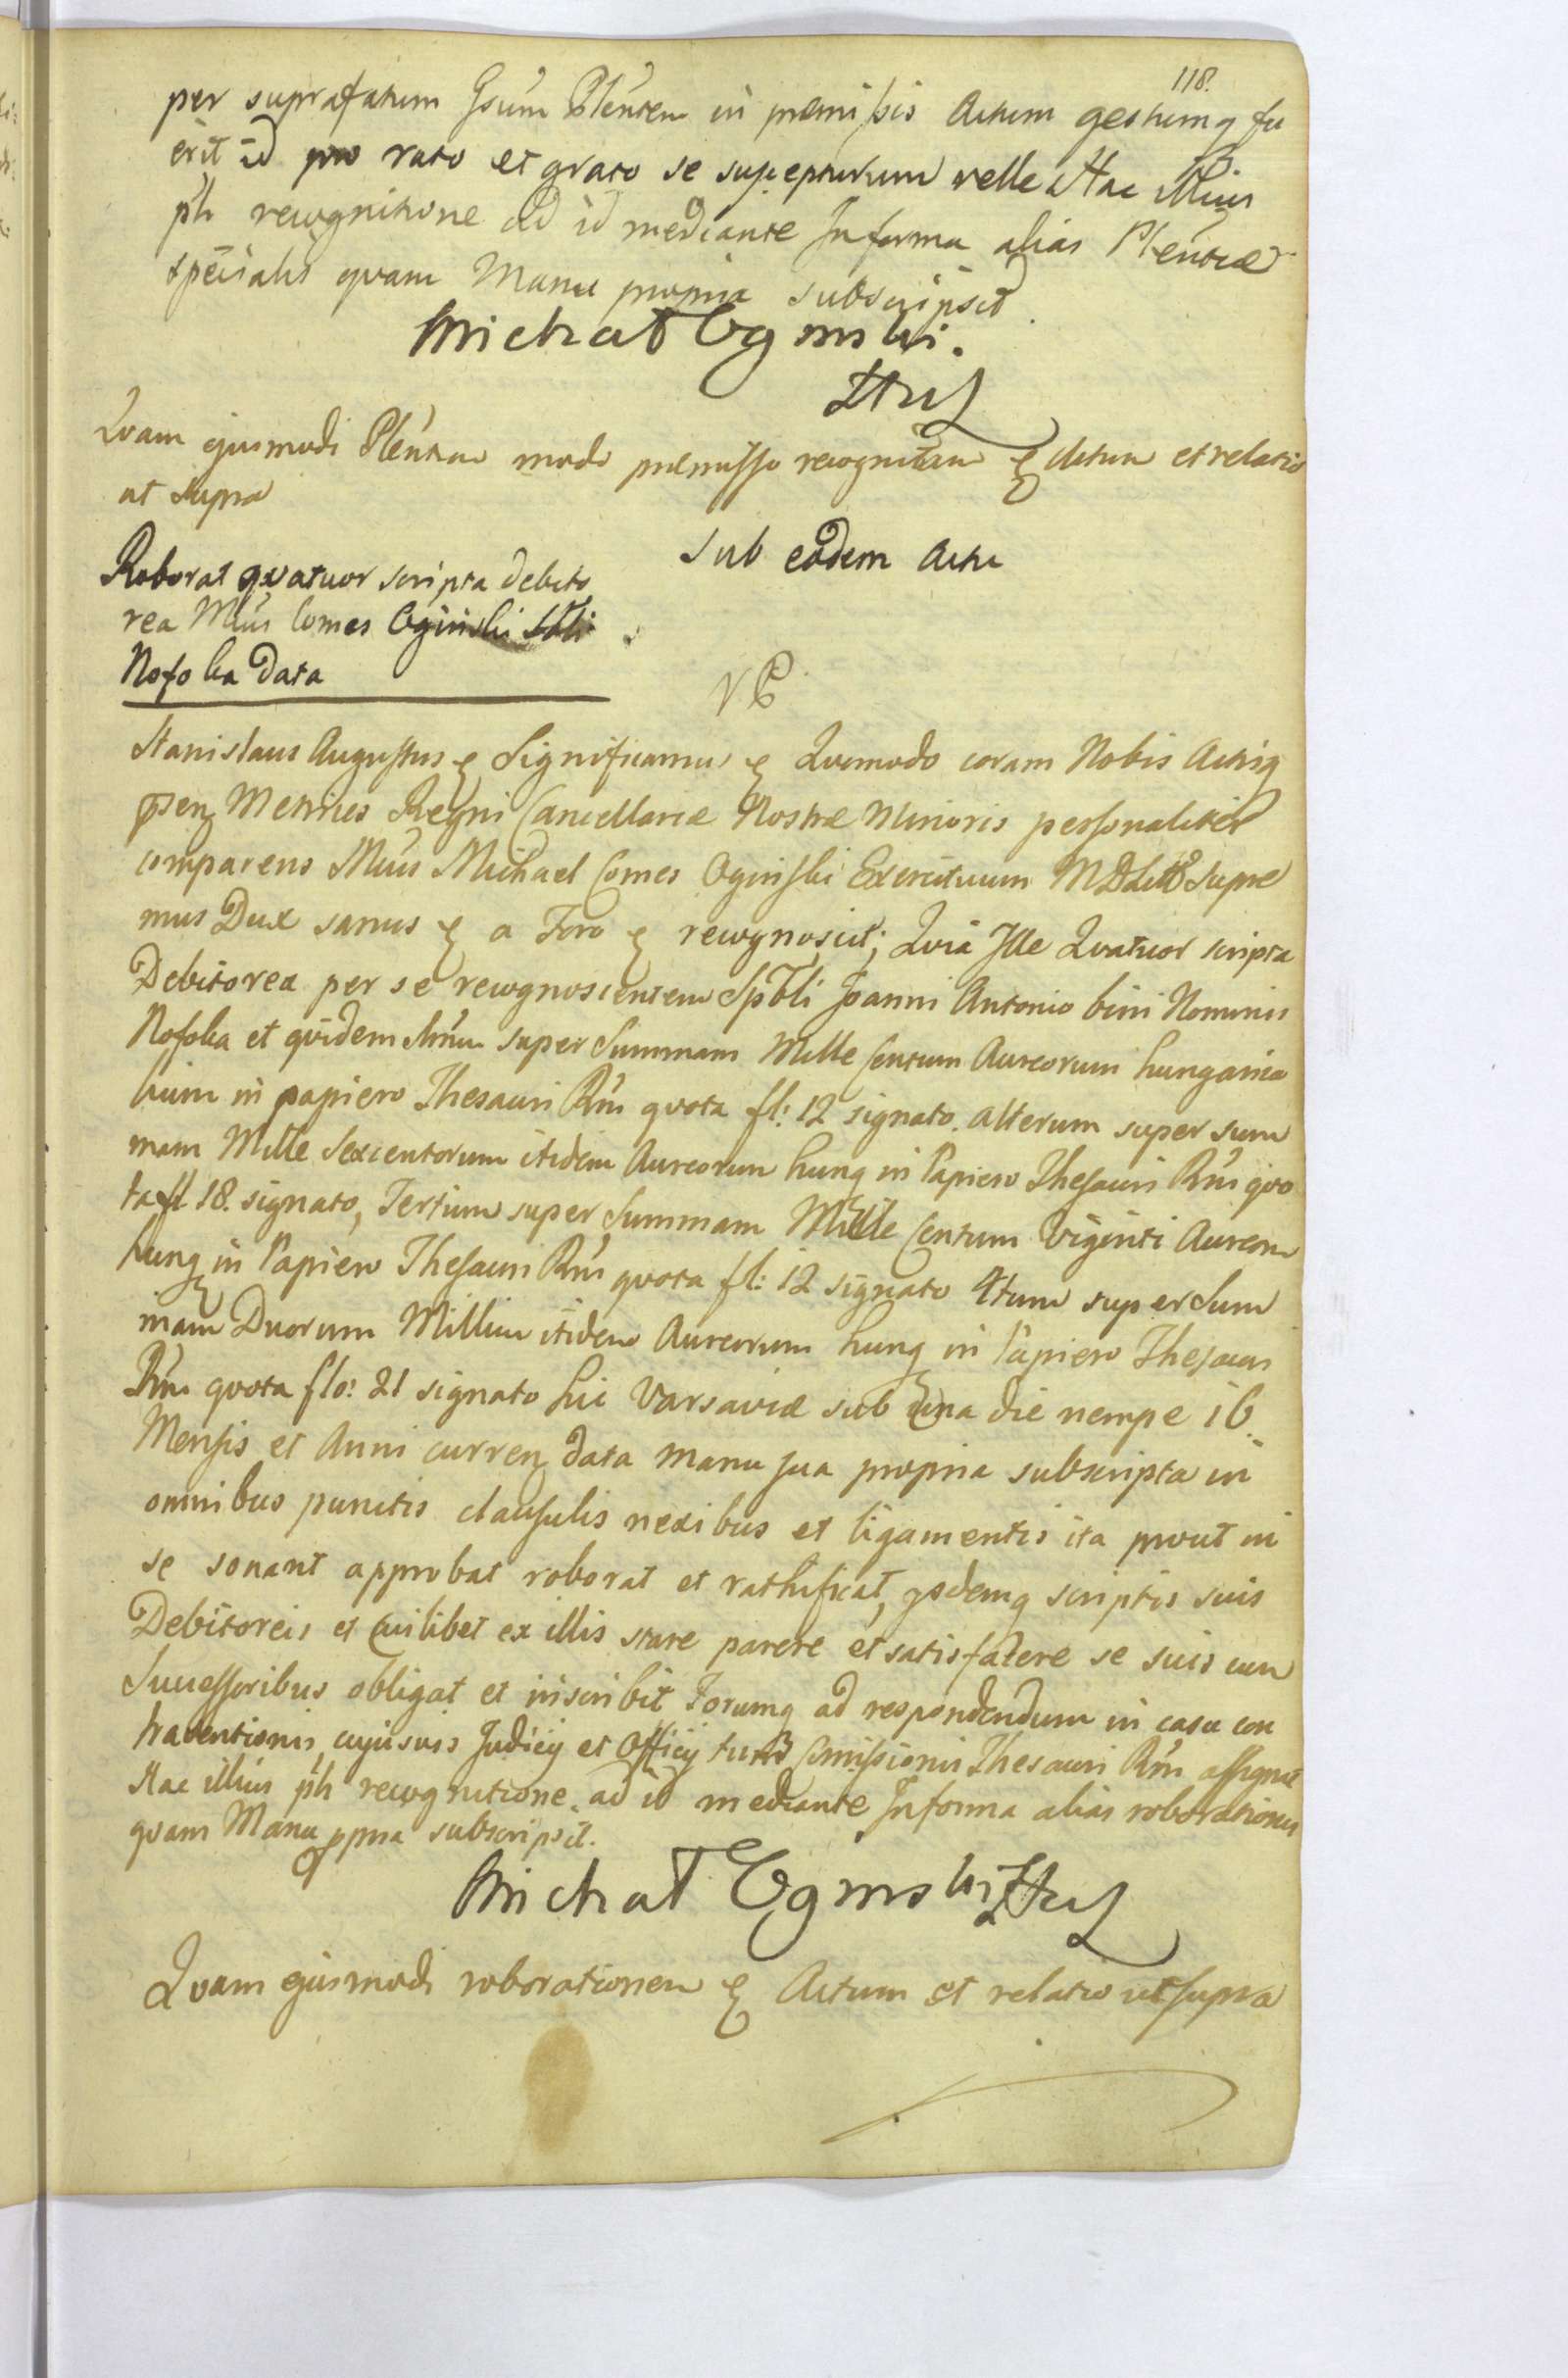 118.
per suprafatum Gsum Plentem in praemissis Actum gestumq fu
erit id pro rato et grato se suscepturum velle Hac illius
ph recognitione ad id mediante In forma alias Plentiae
specialis qvam Manu propria subscripsit
Michał Ogınski.
Qvam ejusmodi Plentiam modo praemisso recognitam Actum et relatio
ut supra
Sub eodem Actu
Roborat qvatuor scripta debito
rea Mlus Comes Oginski Sbli
Nofoka data
Stanislaus Augustus Significamus Qvomodo coram Nobis Actisq
psen Metrices Regni Cancellariae Nostrae Minoris personaliter
comparens Mlus Michael Comes Oginski Exercituum M D Litt Supre
mus Dux sanus a Foro recognoscit; Qvia Ille Qvatuor scripta
Debitorea per se recognoscentem Spbli Joanni Antonio bini Nominis
Nofoka et qvidem super Summam Mille Centum Aureorum hungarica
lium in papiero Thesauri Rni qvota fl: 12 signato. alterum super sum
mam Mille Sexcentorum itidem Aureorum hung in Papiero Thesauri Rni qvo
ta fl 18. signato, Tertium super Summam Mille Centum Viginti Aureor
hung in Papiero Thesauri Rni qvota fl: 12 signato 4tum super Sum
mam Duorum Millium itidem Aureorum hung in Papiero Thesauri
Rni qvota flo: 21 signato hic Varsaviae sub una die nempe 16.
Mensis et Anni curren data manu sua propria subscripta in
omnibus punctis clausulis nexibus et ligamentis ita prout in
se sonant approbat roborat et rathificat, ysdemq scriptis suis
Debitoreis et cuilibet ex illis stare parere et satisfacere se suis cum
Successoribus obligat et inscribit Forumq ad respondendum in casu con
traventionis cujusvis Judicij et Officij Comissionis Thesauri Rni assignat
Hac illius ph recognitione ad id mediante In forma alias roborationis
qvam Manu ppria subscripsit.
Michał Ogınski
Qvam ejusmodi roborationem Actum et relatio ut supra